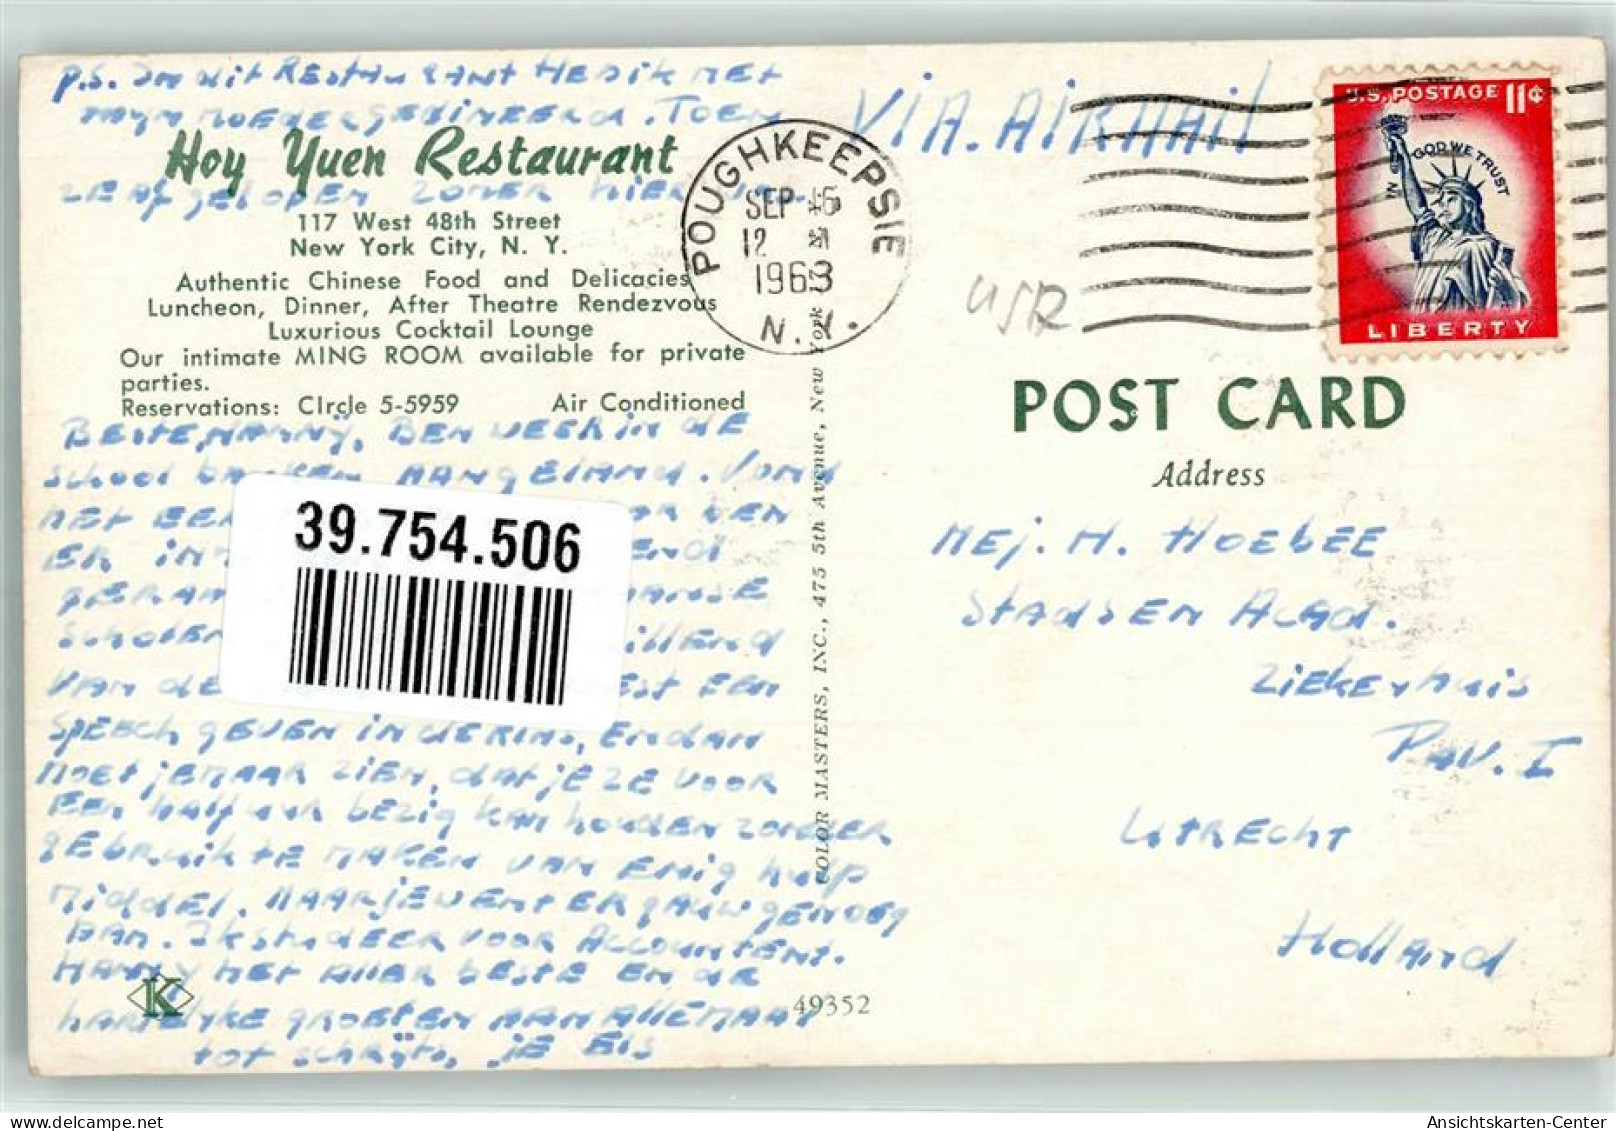 P.S. In dit RESTAURANT HEB IK MET
MIJN MOEDER GEDINEERD. TOEN
Hoy Yuen Restaurant
ZE AFGELOPEN ZOMER HIER
117 West 48th Street
New York City, N. Y.
Authentic Chinese Food and Delicacies
Luncheon, Dinner, After Theatre Rendezvous
Luxurious Cocktail Lounge
Our intimate MING ROOM available for private
parties.
Reservations: CIrcle 5-5959 Air Conditioned
BESTE MANNY, BEN WEER IN DE
SCHOOL BANKEN AANGELAND. VOND
HET EER BEN
ER
GERA
SCHOLEN
VAN DE EEN
SPEECH GEVEN IN DE KLAS, EN DAN
MOET JE MAAR ZIEN, DAT JE ZE VOOR
EEN HALF UUR BEZIG KAN HOUDEN ZONDER
GEBRUIK TE MAKEN VAN ENIG HULP
MIDDEL. MAAR JE WENT ER GAUW GENOEG
AAN. IK STUDEER VOOR ACCOUNTENT.
MANNY HET ALLER BESTE EN DE
HARTELYKE GROETEN AAN ALLEMAAL
TOT SCHRIJFS, JE ELS
K
39.754.506
COLOR MASTERS, INC., 475 5th Avenue, New York 17, N. Y.
49352
POUGHKEEPSIE
SEP 6
12
1963
N.Y.
VIA. AIRMAIL
U.S. POSTAGE 11¢
IN GOD WE TRUST
LIBERTY
USA
POST CARD
Address
MEJ. M. HOEBEE
STADS EN ACAD.
ZIEKENHUIS
PAV. I
UTRECHT
HOLLAND
Ansichtskarten-Center
delcampe.net